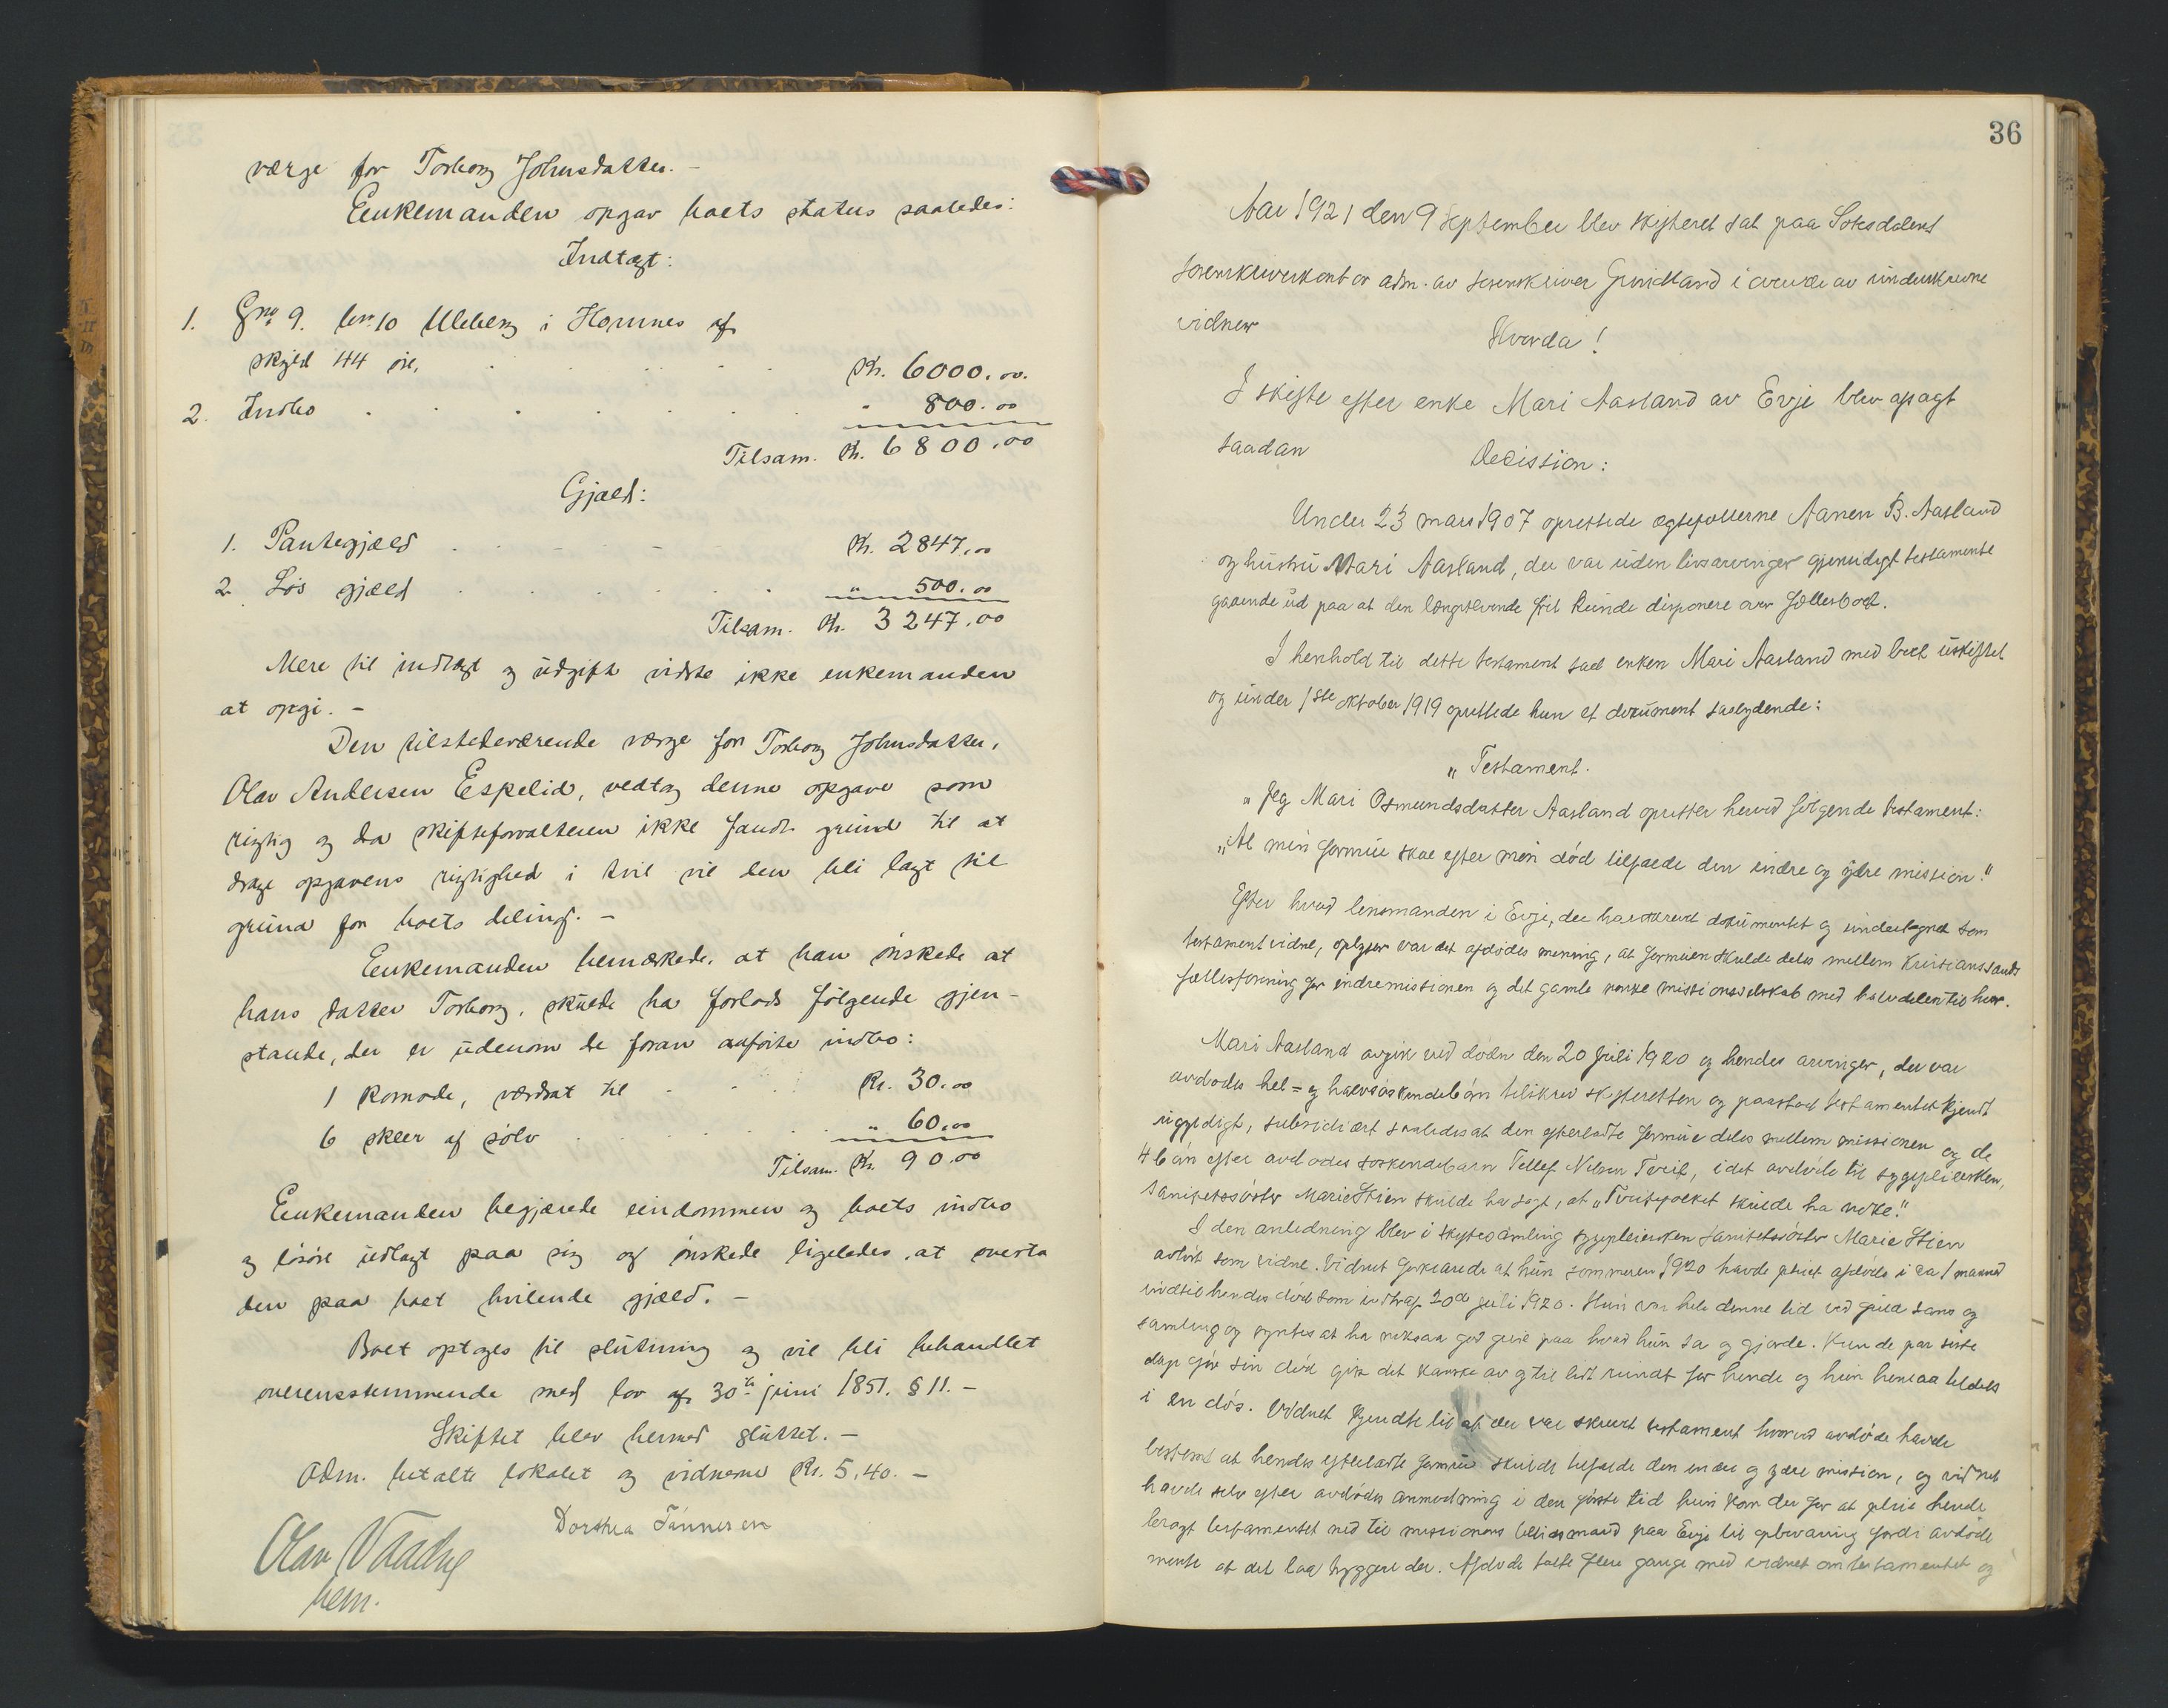 værge for Torborg Johnsdatter. -
Enkemanden opgav boets status saaledes:
Indtægt:
1. Gno 9. bn. 10 Uleberg i Hornnes af
skyld 44 øre, . . . . . Kr. 6000.00.
2. Indbo . . . . . . . " 800.00
Tilsam. Kr. 6800.00
Gjæld:
1. Pantegjæld . . - - - - Kr. 2847.00
2 Løs gjæld . . . . . . " 500.00
Tilsam. Kr. 3247.00
Mere til indtægt og udgift vidste ikke enkemanden
at opgi. -
Den tilstedeværende værge for Torborg Johnsdatter,
Olav Andersen Espelid, vedtog denne opgave som
rigtig og da skifteforvalteren ikke fandt grund til at
drage opgavens rigtighed i tvil vil den bli lagt til
grund for boets deling. -
Enkemanden bemærkede, at han ønskede at
hans datter Torborg, skulde ha forlods følgende gjen-
stande, der er udenom de foran anførte indbo:
1 komode, værdsat til - - . Kr. 30.00
6 skeer af sølv . . . . . . " 60.00
Tilsam. Kr. 90.00
Enkemanden begjærede eiendommen og boets indbo
og løsøre udlagt paa sig og ønskede ligeledes at overta
den paa boet hvilende gjæld. -
Boet optoges til slutning og vil bli behandlet
overensstemmende med lov af 30te juni 1851. § 11. -
Skiftet blev hermed sluttet. -
Adm. betalte lokalet og vidnerne Kr. 5,40. -
Dorthea Tønnesen
Olav Vaadne
hem.
36
Aar 1921 den 9 September blev skifteret sat paa Setesdalens
sorenskriverkontor adm. av sorenskriver Grindland i overvær av underskrevne
vidner
Hvorda!
I skifte efter enke Mari Aasland av Evje blev afsagt
saadan
Decission:
Under 23 mars 1907 oprettede ægtefollerne Aanen B. Aasland
og hustru Mari Aasland, der var uden livsarvinger gjensidigt testamente
gaaende ud paa at den længstlevende frit kunde disponere over fællesboet.
I henhold til dette testament sad enken Mari Aasland med boet uskiftet
og under 1ste oktober 1919 oprettede hun et document saalydende:
" Testament.
" Jeg Mari Osmundsdatter Aasland opretter herved følgende testament:
"Al min formue skal efter min død tilfalde den indre og ydre mission."
Efter hvad lensmanden i Evje, der har skrevet dokumentet og undertegnet som
testamentvidne, oplyser var det afdødes mening, at formuen skulde deles mellem Kristianssands
fællesforening for indremissionen og det gamle norske missionsselskab med halvdelen til hver.
Mari Aasland avgik ved døden den 20 juli 1920 og hendes arvinger, der var
avdødes hel= og halvsøskendebørn tilskrev skifteretten og paastod testamentet kjendt
ugyldigt, subsidiært saaledes at den efterladte formue deles mellem missionen og de
4 børn efter avdødes søskendebarn Tellef Nilsen Tveit, idet avdøde til sygepleiersken,
sanitetssøster Marie Stien skulde ha sagt, at "Tveitefolket skulde ha noke."
I den anledning blev i skiftesamling sygepleiersken sanitetssøster Marie Stien
avhørt som vidne. Vidnet forklarede at hun sommeren 1920 havde pleiet afdøde i ca 1 maaned
indtil hendes død som indtraf 20de juli 1920. Hun var hele denne tid ved fuld sans og
samling og syntes at ha noksaa god greie paa hvad hun sa og gjorde. Kun de par siste
dage før sin død gik det kanske av og til lidt rundt for hende og hun henlaa tildels
i en døs. Vidnet kjendte til at der var skrevet testament hvorved avdøde havde
bestemt at hendes efterladte formue skulde tilfalde den indre og ydre mission, og vidnet
havde selv efter avdødes anmodning i den første tid hun kom der for at pleie hende
bragt testamentet ned til missionens tillidsmand paa Evje til opbevaring fordi avdøde
mente at det laa tryggere der. Afdøde talte flere gange med vidnet om testamentet og